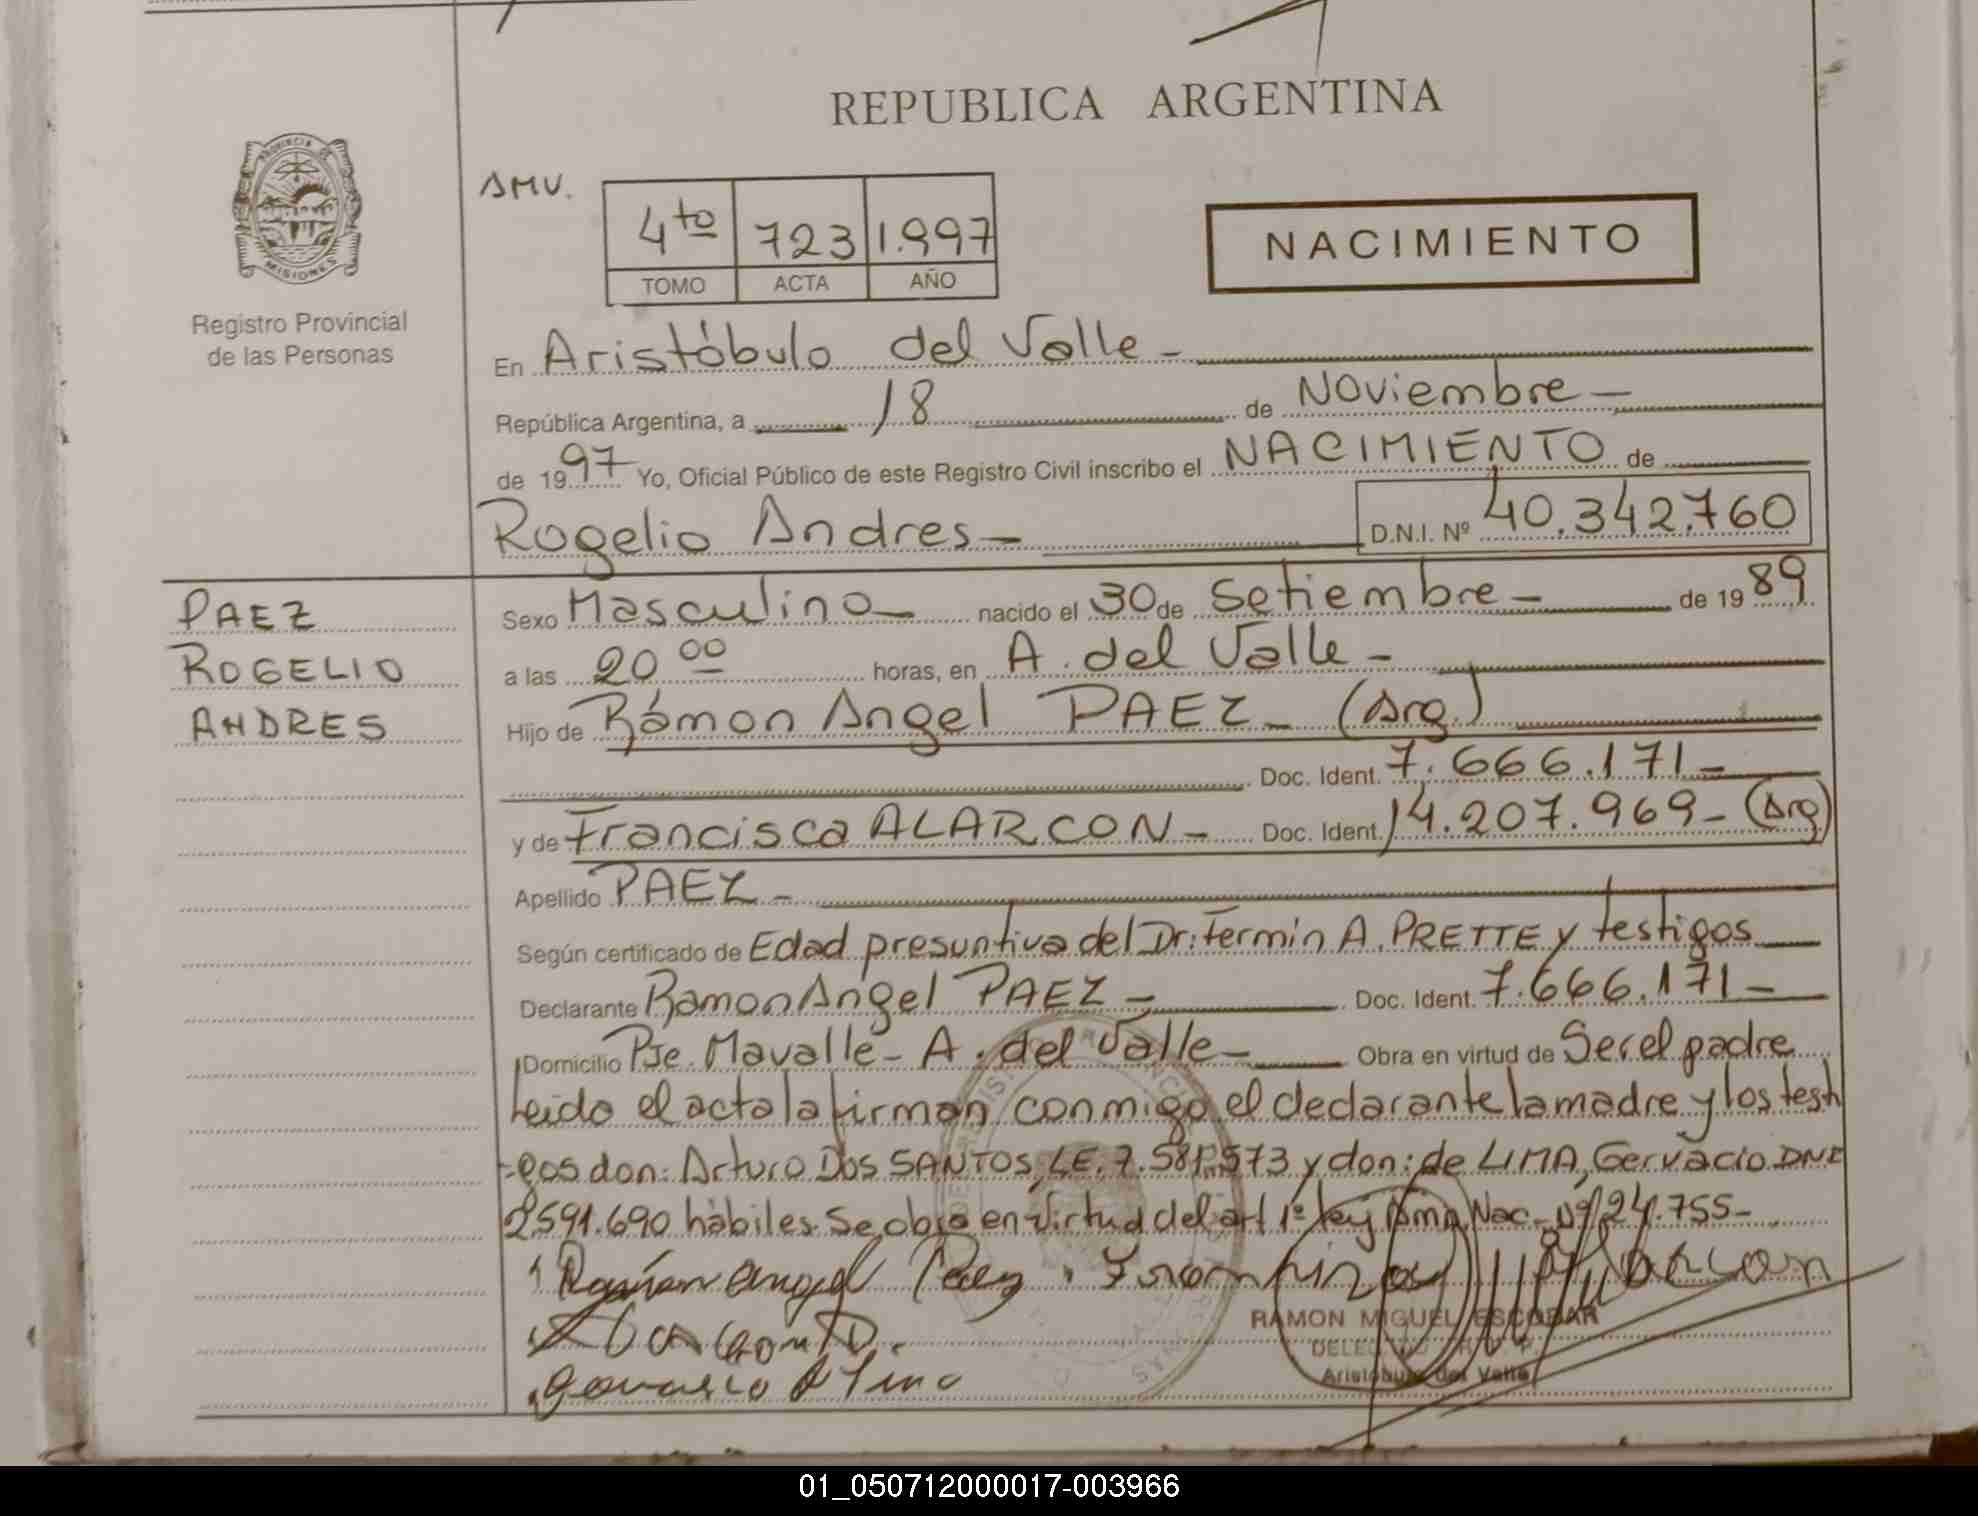 REPUBLICA ARGENTINA
PROVINCIA DE
MISIONES
Registro Provincial
de las Personas
AMV.
4to 723 1.997
TOMO ACTA AÑO
NACIMIENTO
En Aristóbulo del Valle -
República Argentina, a 18 de Noviembre -
de 1997 Yo, Oficial Público de este Registro Civil inscribo el NACIMIENTO de
Rogelio Andres - D.N.I. Nº 40.342.760
PAEZ
ROGELIO
ANDRES
Sexo Masculino - nacido el 30 de Setiembre - de 1989
a las 20 00 horas, en A. del Valle -
Hijo de Rámon Angel PAEZ - (Arg.)
Doc. Ident. 7.666.171 -
y de Francisca ALARCON - Doc. Ident. 14.207.969 - (Arg)
Apellido PAEZ -
Según certificado de Edad presuntiva del Dr: Fermin A. PRETTE y testigos
Declarante Ramon Angel PAEZ - Doc. Ident. 7.666.171 -
Domicilio Pje. Mavalle - A. del Valle - Obra en virtud de Ser el padre
Leido el acta la firman conmigo el declarante la madre y los testi
-gos don: Arturo DOS SANTOS, LE. 7.581.573 y don: de LIMA, Gervacio DNI
2.591.690 hábiles. Se obra en virtud del art 1º ley Nac. Nº 24.755 -
Ramón angel Paez
Alarcon
RAMON MIGUEL ESCOBAR
Aristóbulo del Valle
01_050712000017-003966